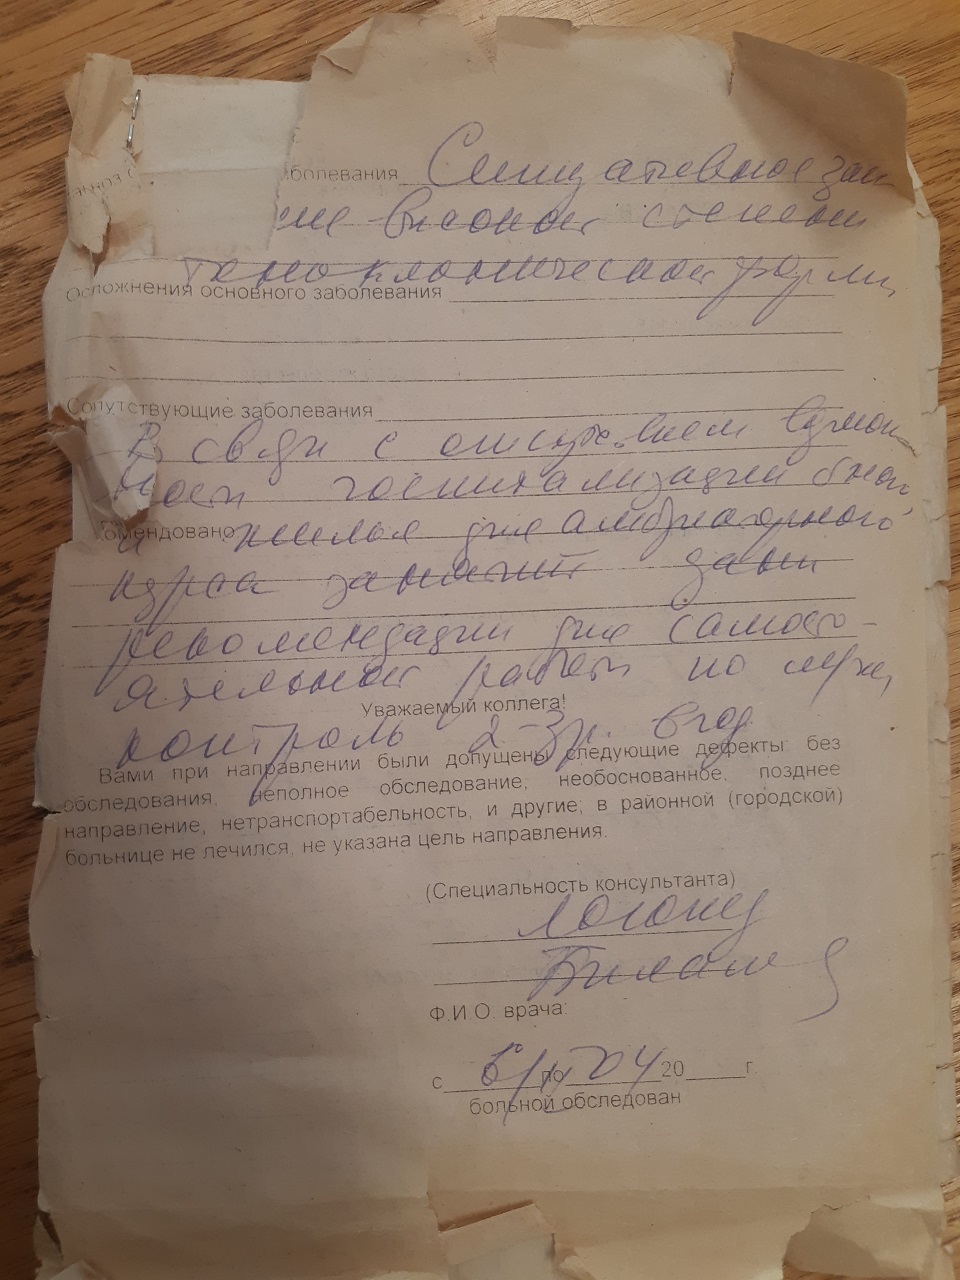 болевания
высокой степени
тоноклонической формы
Осложнения основного заболевания
Сопутствующие заболевания
В связи с отсутствием возмож-
ности госпитализации
омендовано
и жилья для амбулаторного
курса занятий даны
рекомендации для самосто-
ятельной работы по
Уважаемый коллега!
контроль 2-3 р. в год
Вами при направлении были допущены следующие дефекты: без
обследования, неполное обследование, необоснованное, позднее
направление, нетранспортабельность, и другие; в районной (городской)
больнице не лечился, не указана цель направления.
(Специальность консультанта)
Логопед
Ф.И.О. врача:
с по 04 20 г.
больной обследован